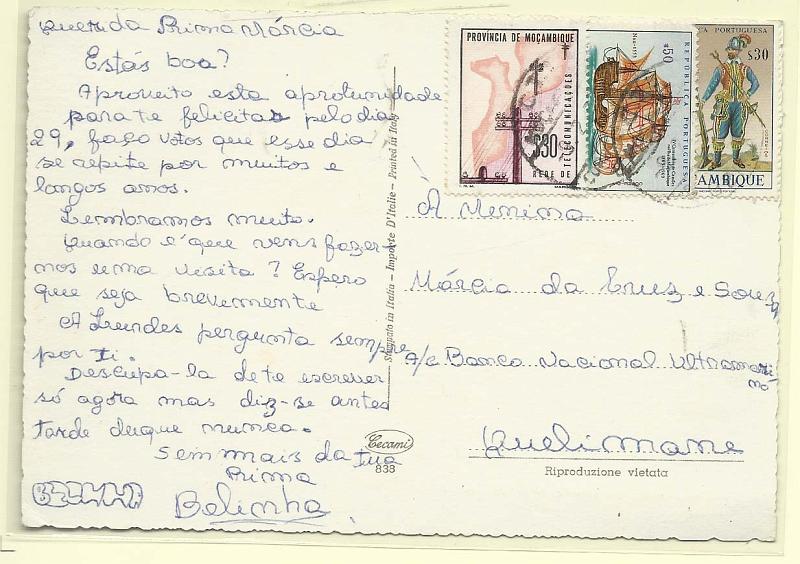 Querida Prima Márcia
Estás boa?
Aproveito esta aprotunidade
para te felicitar pelo dia
29, faço votos que esse dia
se repite por muitos e
langos amos.
Lembramos muito.
Quando é que vens fazer-
mos uma visita? Espero
que seja brevemente
A Lurdes pergunta sempre
por ti.
Descupa-la de te escrever
só agora mas diz-se antes
tarde duque nunca.
Sem mais da tua
Prima
Belinha
Stampato in Italia - Imprimé D'Italie - Printed in Italy
Cecami
838
PROVÍNCIA DE MOÇAMBIQUE
$30
REDE DE
TELECOMUNICAÇÕES
$50
REPÚBLICA PORTUGUESA
CA PORTUGUESA
$30
AMBIQUE
À Menina
Márcia da Cruz e Souza
A/c Banco Nacional Ultramarino
Quelimane
Riproduzione vietata